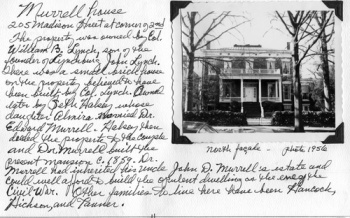 Murrell House
205 Madison Street at corner of 2nd
The property was owned by Col.
William B. Lynch, son of the
founder of Lynchburg John Lynch.
There was a small brick house
on the property, believed to have
been built by Col. Lynch. Owned
later by Seth Halsey whose
daughter Elmira married Dr.
Edward Murrell. Halsey then
deeded the property to the couple
and Dr. Murrell built the
present mansion c. 1859. Dr.
Murrell had inherited his uncle John D. Murrell's estate and
could well afford to build the opulent dwelling as the eve of the
Civil War. Other families to live here have been Hancock,
Hickson, and Tanner.
north façade - photo 1956